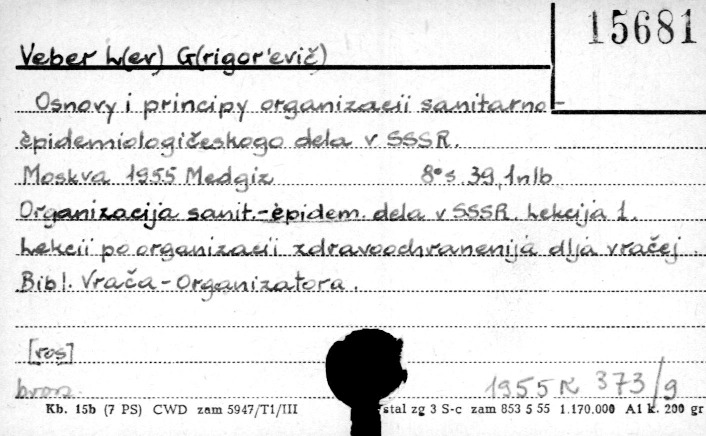 15681
Veber L(ev) G(rigor'evič)
Osnovy i principy organizacii sanitarno-
èpidemiologičeskogo dela v SSSR.
Moskva 1955 Medgiz 8° s. 39, 1nlb
Organizacija sanit.-èpidem. dela v SSSR. Lekcija 1.
Lekcii po organizacii zdravoochranenija dlja vračej.
Bibl. Vrača-Organizatora.
[ros]
brosz.
1955 K 373/9
Kb. 15b (7 PS) CWD zam 5947/T1/III stal zg 3 S-c zam 853 5 55 1.170.000 A1 k. 200 gr